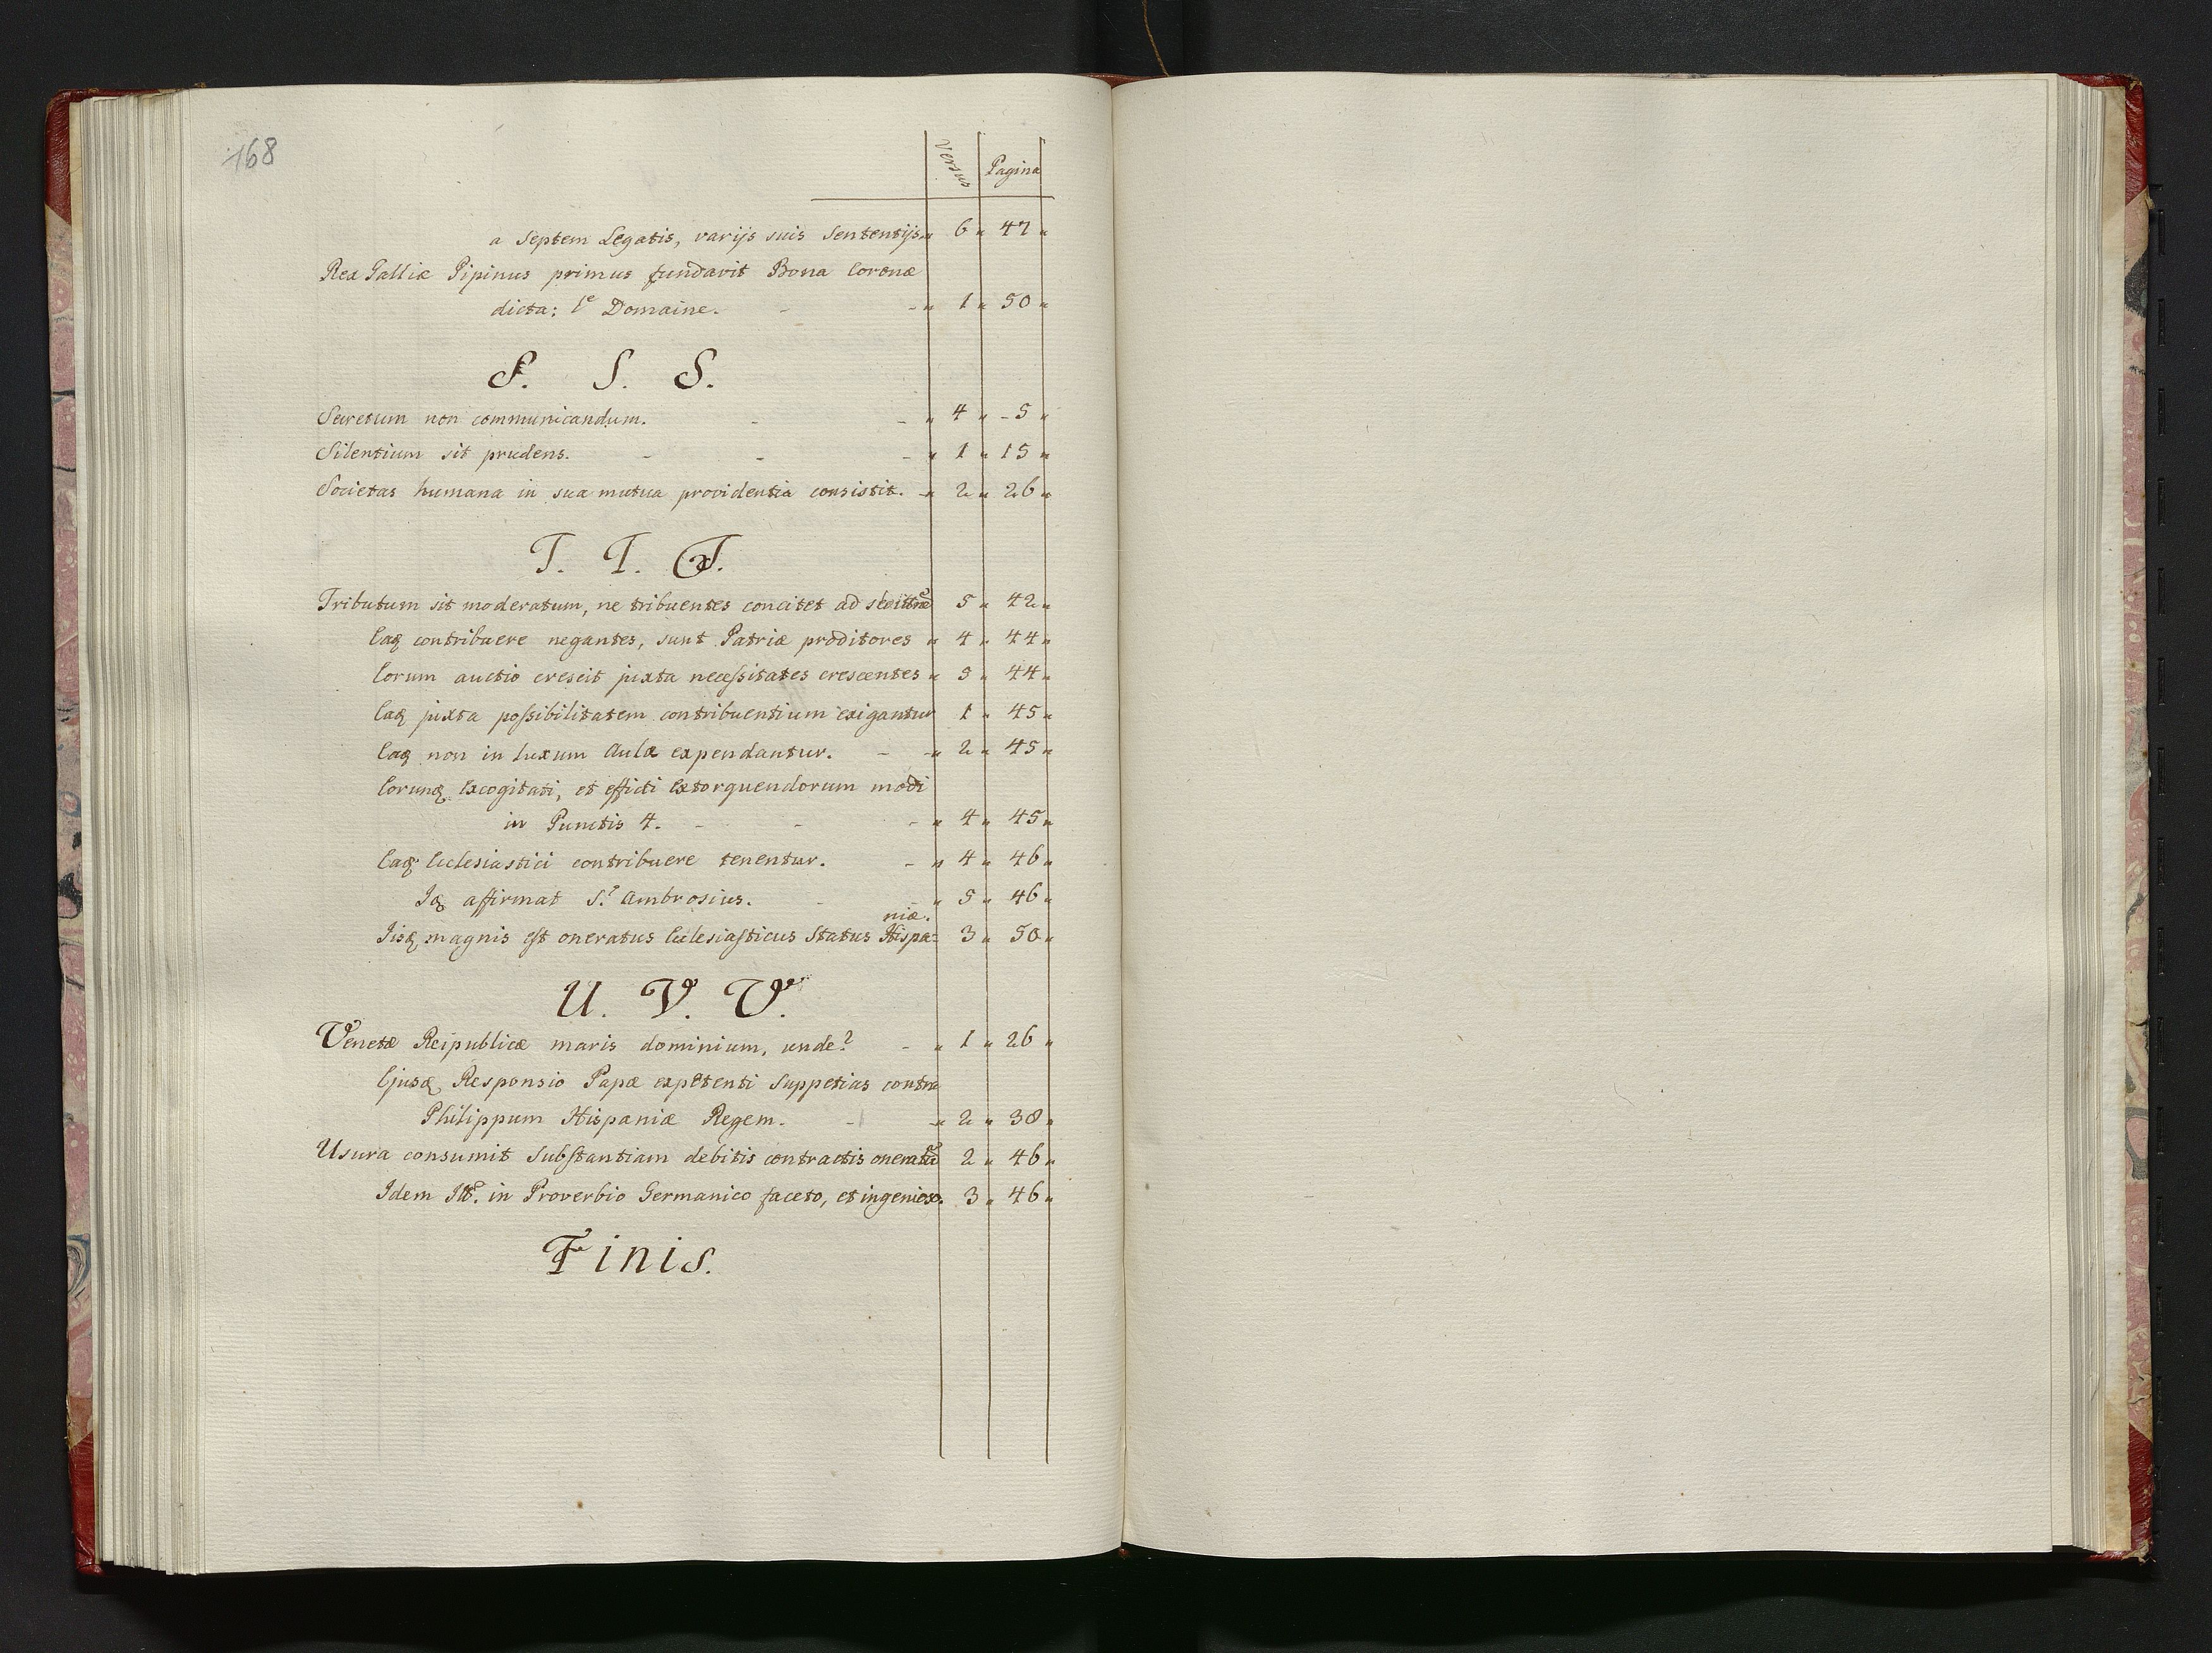 168
Versus Pagina
a Septem Legatis, varijs suis Sententijs. „ 6 „ 47 „
Rex Galliæ Pipinus primus fundavit Bona Coronæ
dicta: le Domaine. - - „ 1 „ 50 „
S. S. S.
Secretum non communicandum. - - „ 4 „ - 5 „
Silentium sit prudens. - - - „ 1 „ 15 „
Societas humana in sua mutua providentia consistit. - „ 2 „ 26 „
T. T. T.
Tributum sit moderatum, ne tribuentes concitet ad 5 „ 42 „
Eaq contribuere negantes, sunt Patriæ proditores „ 4 „ 44 „
Eorum auctio crescit juxta necessitates crescentes „ 5 „ 44 „
Eaq juxta possibilitatem contribuentium exigantur 1 „ 45 „
Eaq non in luxum Aulæ expendantur. - - „ 2 „ 45 „
Eorunq Excogitati, et efficti Extorquendorum modi
in Punctis 4. - - - „ 4 „ 45 „
Eaq Ecclesiastici contribuere tenentur. - „ 4 „ 46 „
Iq affirmat S. Ambrosius. - - „ 5 „ 46 „
niæ.
Iisq magnis est oneratus Ecclesiasticus Status Hispa= 3 „ 50 „
U. V. V.
Venetæ Reipublicæ maris dominium, unde? - „ 1 „ 26 „
Ejusq Responsio Papæ expetenti Suppetias contra
Philippum Hispaniæ Regem. - - „ 2 „ 38 „
Usura consumit Substantiam debitis contractis 2 „ 46 „
Idem in Proverbio Germanico faceto, et ingenioso. 3 „ 46 „
Finis.